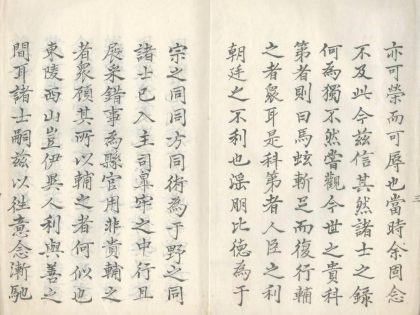 亦可榮而可辱也當時余罔念
不及此今茲信其然諸士之錄
何為獨不然嘗觀今世之貴科
第者則曰馬蚿斬足而復行輔
之者衆耳是科第者人臣之利
朝廷之不利也滛朋比德為于
宗之同同方同術為于野之同
諸士已入主司皐牢之中行且
展采錯事為縣官用非貴輔之
者衆顧其所以輔之者何似也
東陵西山豈伊異人利與善之
間耳諸士嗣茲以徃意念漸馳
三